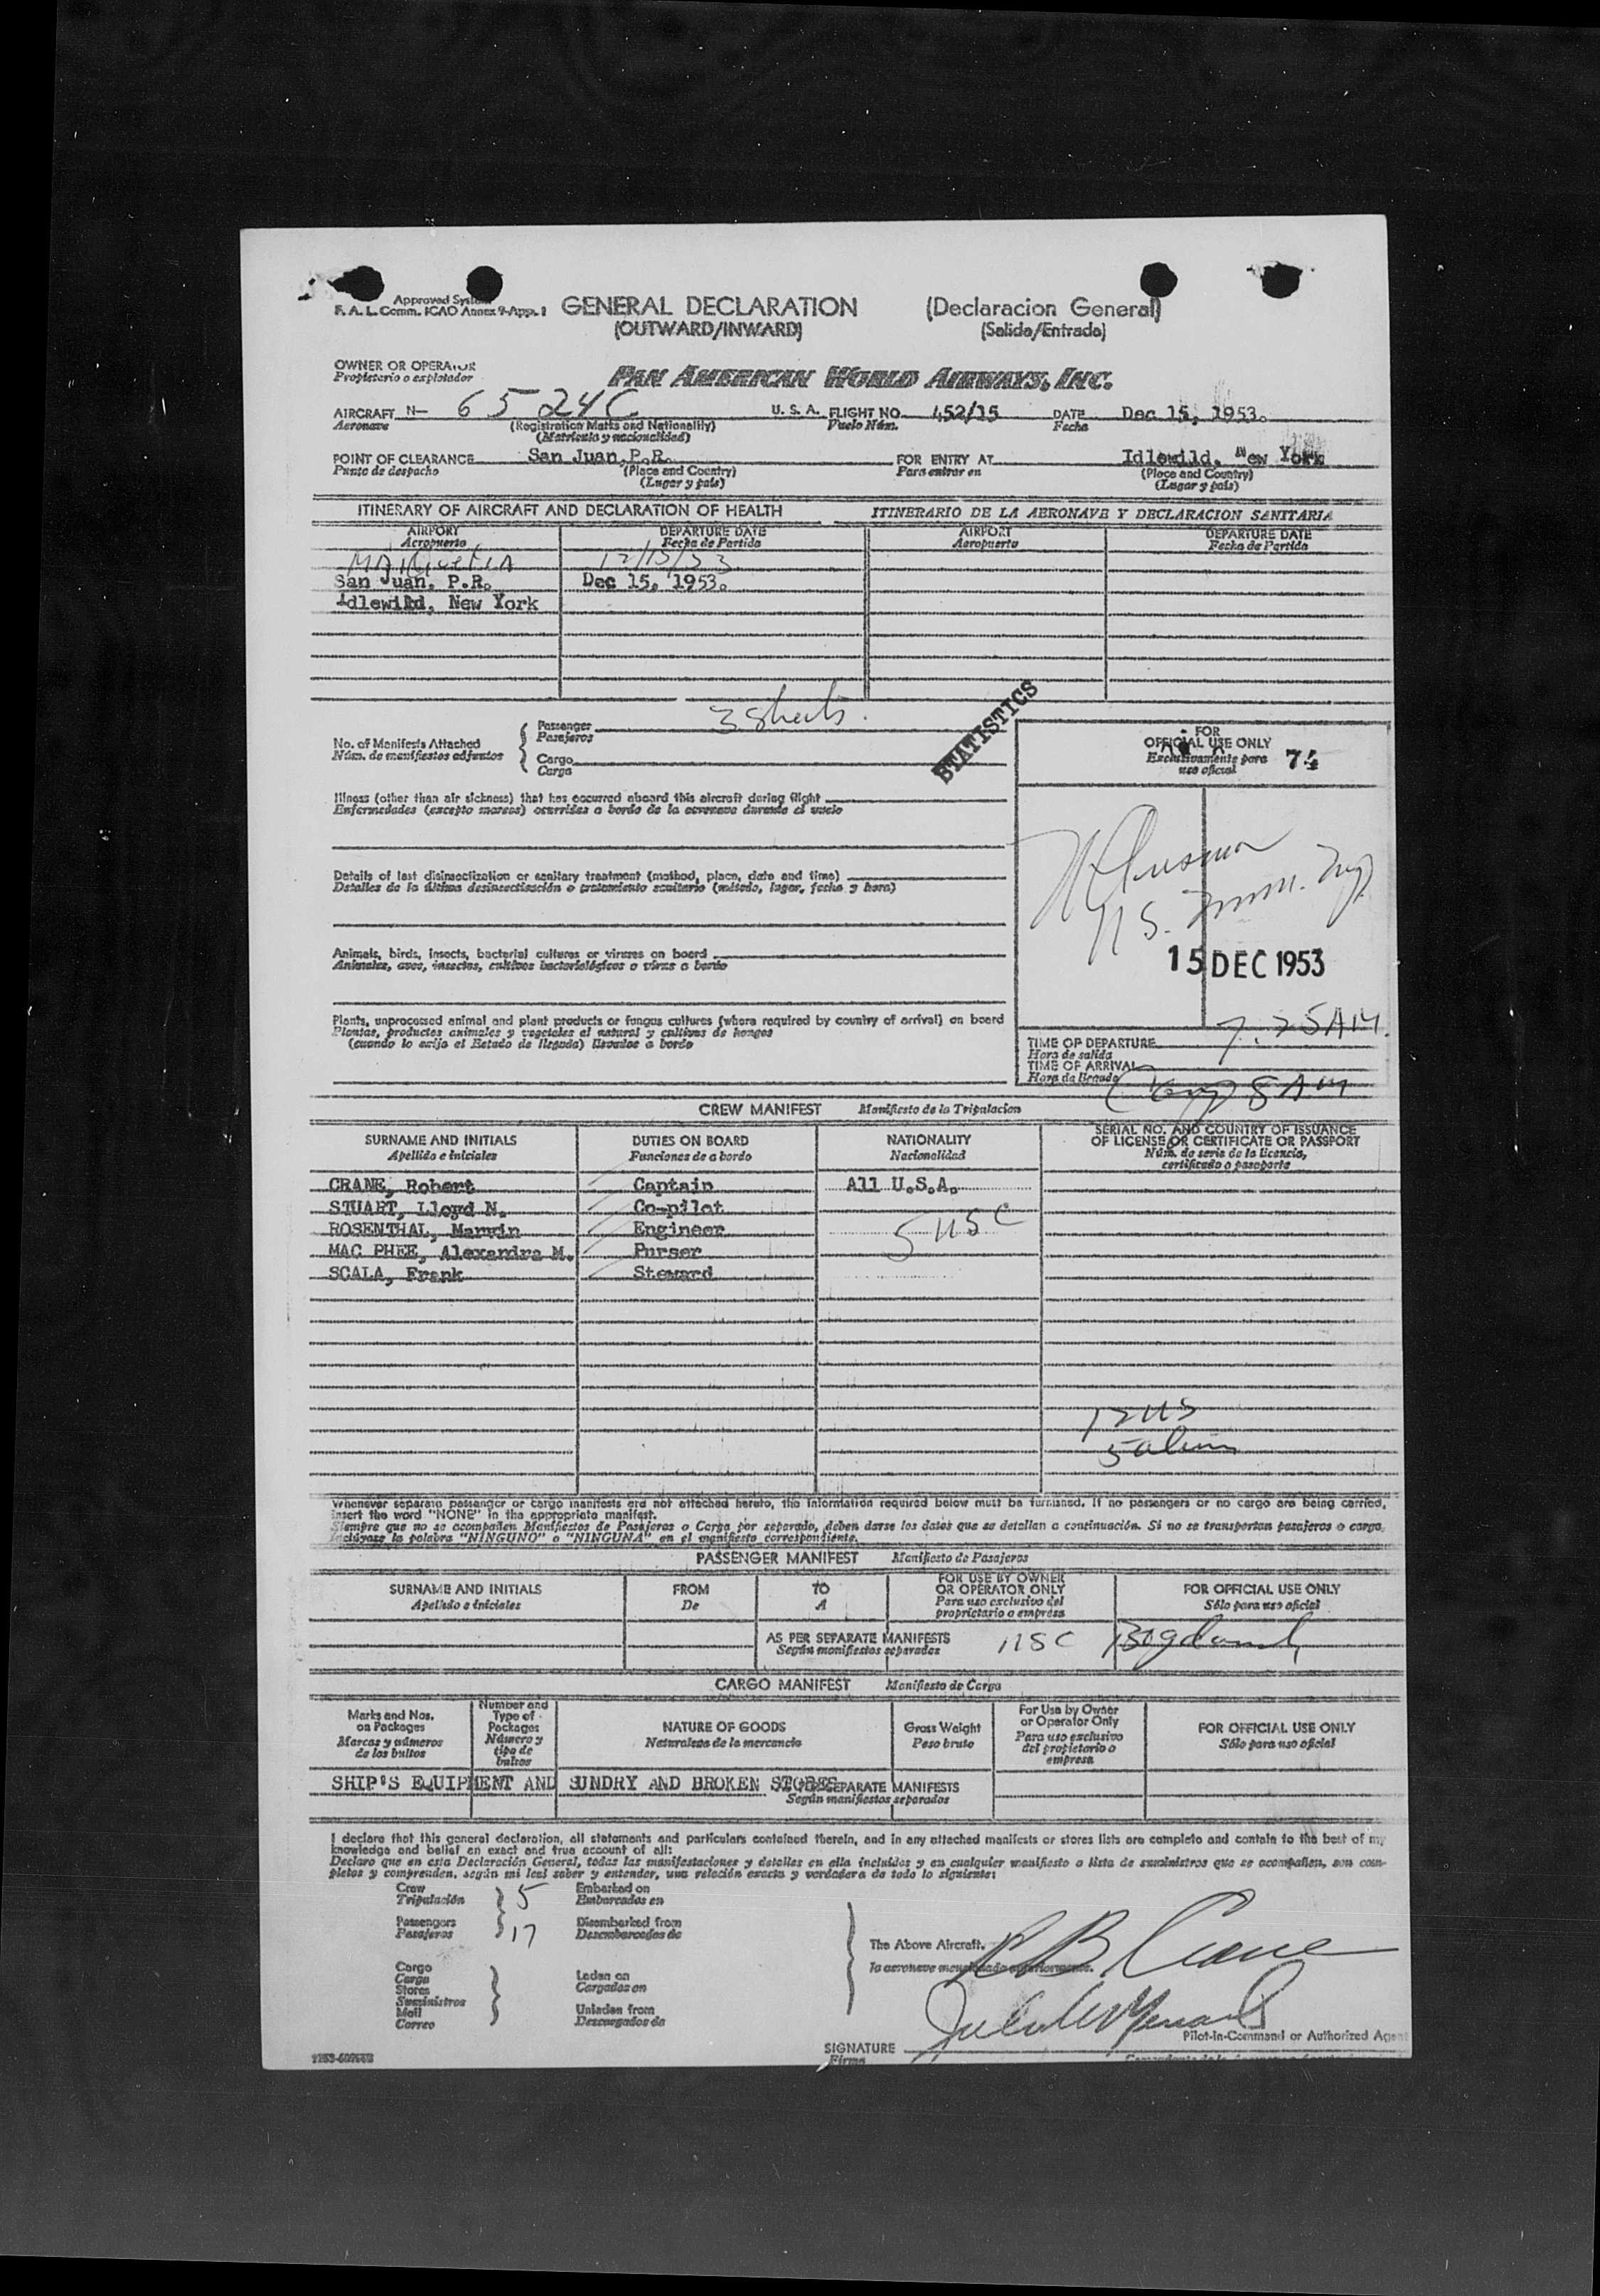 Approved System
F. A. L. Comm. ICAO Annex 9-App. 1
GENERAL DECLARATION (Declaracion General)
(OUTWARD/INWARD) (Salida/Entrada)
OWNER OR OPERATOR
Propietario o explotador
PAN AMERICAN WORLD AIRWAYS, INC.
AIRCRAFT N- 6524C U. S. A. FLIGHT NO. 452/15 DATE Dec 15, 1953.
Aeronave (Registration Marks and Nationality) Vuelo Núm. Fecha
(Matricula y nacionalidad)
POINT OF CLEARANCE San Juan,P.R. FOR ENTRY AT Idlewild, New York
Punto de despacho (Place and Country) Para entrar en (Place and Country)
(Lugar y país) (Lugar y país)
ITINERARY OF AIRCRAFT AND DECLARATION OF HEALTH ITINERARIO DE LA AERONAVE Y DECLARACION SANITARIA
AIRPORT DEPARTURE DATE AIRPORT DEPARTURE DATE
Aeropuerto Fecha de Partida Aeropuerto Fecha de Partida
12/15/53
San Juan, P.R. Dec 15, 1953.
Idlewild, New York
3 Sheets.
STATISTICS
No. of Manifests Attached
Núm. de manifiestos adjuntos
Passenger
Pasajeros
Cargo
Carga
FOR
OFFICIAL USE ONLY
Exclusivamente para
uso oficial
74
Illness (other than air sickness) that has occurred aboard this aircraft during flight
Enfermedades (excepto mareos) ocurridas a bordo de la aeronave durante el vuelo
Details of last disinsectization or sanitary treatment (method, place, date and time)
Detalles de la última desinsectisación o tratamiento sanitario (método, lugar, fecha y hora)
U.S. Imm. Insp
15 DEC 1953
Animals, birds, insects, bacterial cultures or viruses on board
Animales, aves, insectos, cultivos bacteriológicos o virus a bordo
Plants, unprocessed animal and plant products or fungus cultures (where required by country of arrival) on board
Plantas, productos animales y vegetales al natural y cultivos de hongos
(cuando lo exija el Estado de llegada) llevados a bordo
TIME OF DEPARTURE 7.25AM.
Hora de salida
TIME OF ARRIVAL 8 AM
Hora de llegada
CREW MANIFEST Manifiesto de la Tripulacion
SURNAME AND INITIALS DUTIES ON BOARD NATIONALITY SERIAL NO. AND COUNTRY OF ISSUANCE
OF LICENSE OR CERTIFICATE OR PASSPORT
Apellido e iniciales Funciones de a bordo Nacionalidad Núm. de serie de la licencia,
certificado o pasaporte
CRANE, Robert Captain All U.S.A.
STUART, Lloyd N. Co-pilot
ROSENTHAL, Marwin Engineer 5 USC
MAC PHEE, Alexandra M. Purser
SCALA, Frank Steward
12 US
5 alien
Whenever separate passenger or cargo manifests are not attached hereto, the information required below must be furnished. If no passengers or no cargo are being carried,
insert the word "NONE" in the appropriate manifest.
Siempre que no se acompañen Manifiestos de Pasajeros o Carga por separado, deben darse los datos que se detallan a continuación. Si no se transportan pasajeros o carga,
inclúyase la palabra "NINGUNO" o "NINGUNA" en el manifiesto correspondiente.
PASSENGER MANIFEST Manifiesto de Pasajeros
SURNAME AND INITIALS FROM TO FOR USE BY OWNER
OR OPERATOR ONLY FOR OFFICIAL USE ONLY
Apellido e iniciales De A Para uso exclusivo del
propietario o empresa Sólo para uso oficial
AS PER SEPARATE MANIFESTS
Según manifiestos separados
USC
CARGO MANIFEST Manifiesto de Carga
Marks and Nos.
on Packages
Marcas y números
de los bultos
Number and
Type of
Packages
Número y
tipo de
bultos
NATURE OF GOODS
Naturaleza de la mercancía
Gross Weight
Peso bruto
For Use by Owner
or Operator Only
Para uso exclusivo
del propietario o
empresa
FOR OFFICIAL USE ONLY
Sólo para uso oficial
SHIP'S EQUIPMENT AND SUNDRY AND BROKEN STORES SEPARATE MANIFESTS
Según manifiestos separados
I declare that this general declaration, all statements and particulars contained therein, and in any attached manifests or stores lists are complete and contain to the best of my
knowledge and belief an exact and true account of all:
Declaro que en esta Declaración General, todas las manifestaciones y detalles en ella incluidos y en cualquier manifiesto o lista de suministros que se acompañen, son com-
pletos y comprenden, según mi leal saber y entender, una relación exacta y verdadera de todo lo siguiente:
Crew 5 Embarked on
Tripulación Embarcados en
Passengers 17 Disembarked from
Pasajeros Desembarcados de
Cargo
Carga
Stores
Suministros
Mail
Correo
Laden on
Cargados en
Unladen from
Descargados de
The Above Aircraft.
la aeronave mencionada anteriormente.
R B Crane
Pilot-in-Command or Authorized Agent
SIGNATURE
Firma